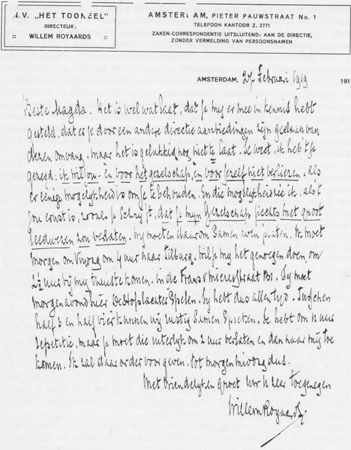 N.V. "HET TOONEEL"
DIRECTEUR:
WILLEM ROYAARDS
AMSTERDAM, PIETER PAUWSTRAAT No. 1
TELEFOON KANTOOR Z. 2771
ZAKEN-CORRESPONDENTIE UITSLUITEND: AAN DE DIRECTIE,
ZONDER VERMELDING VAN PERSOONSNAMEN
AMSTERDAM, 27 Februari 1919 191
Beste Magda. Het is wel wat laat, dat je mij er mee in kennis hebt
gesteld, dat er je door een andere directie aanbiedingen zijn gedaan van
dezen omvang, maar het is gelukkig nog niet te laat. Je weet, ik heb 't je
gezegd: ik wil jou - en voor het gezelschap, en voor mijzelf niet verliezen, als
er eenige mogelijkheid is om je te behouden. En die mogelijkheid zie ik, als 't
jou ernst is, zooals je schrijft, dat je mijn Gezelschap slechts met groot
leedwezen zou verlaten. Wij moeten daarom samen eens praten. Ik moet
morgen om 4 uur naar Tilburg. Wil je mij het genoegen doen om
2½ uur bij mij thuis te komen. in de Frans v Mierisstraat
morgenavond hier te spelen. Jij hebt dus allen tijd. Tusschen
half 3 en half vier kunnen wij rustig samen spreken. Je hebt om 12 uur
repetitie, maar je moet die uiterlijk om 2 uur verlaten en dan naar mij toe
komen. Ik zal daar order voor geven. Tot morgenmiddag dus.
Met vriendelijken groet Uw zeer toegenegen
Willem Royaards